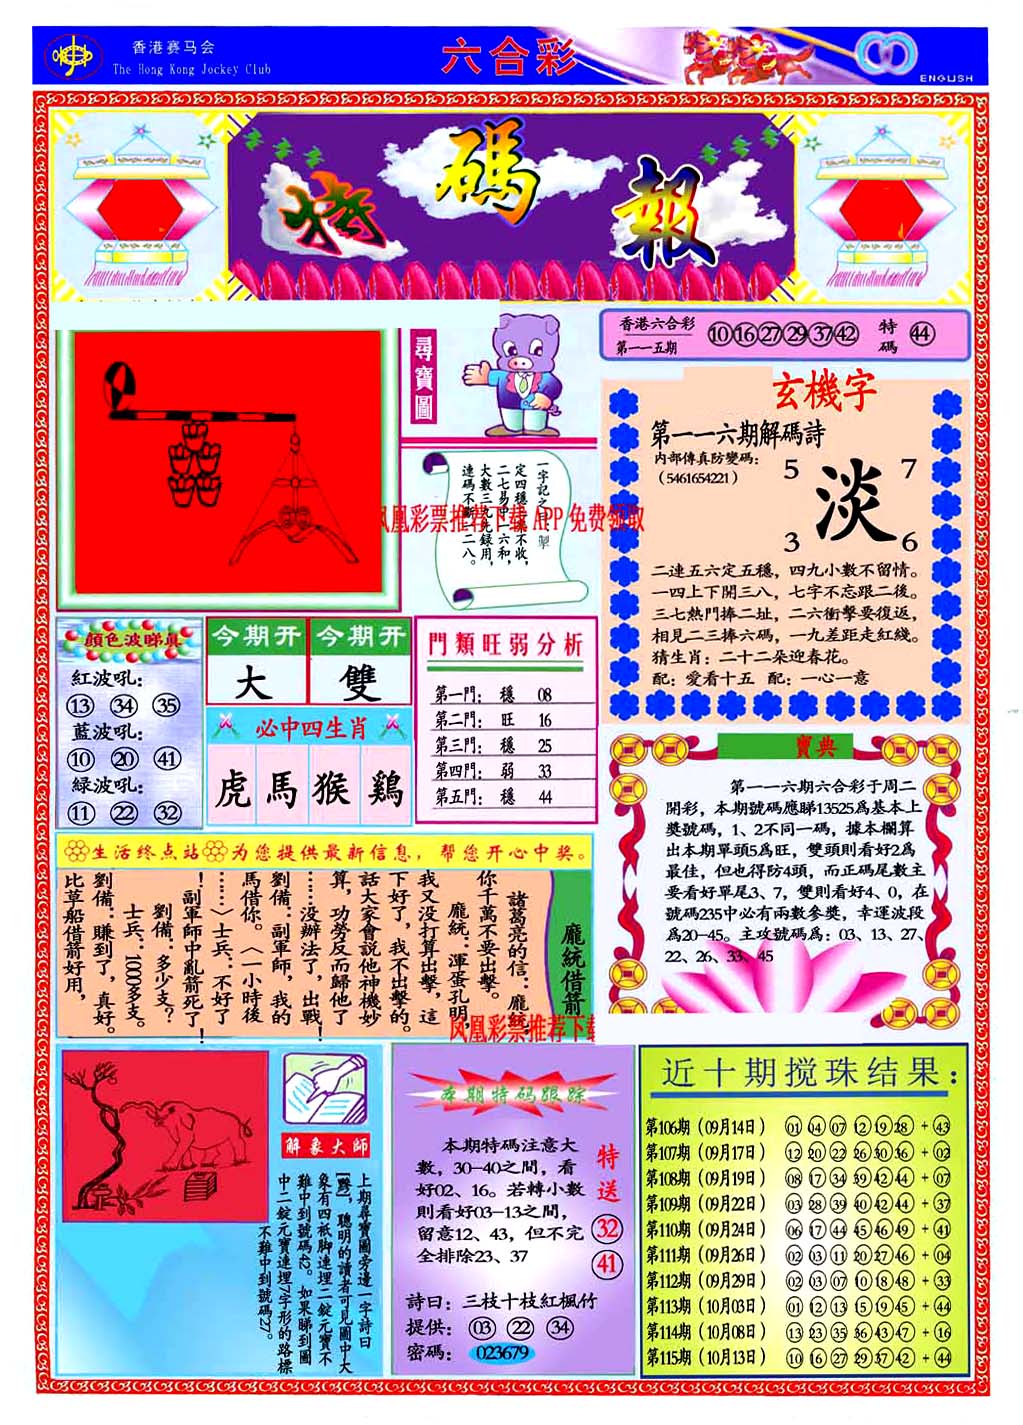 香港赛马会
The Hong Kong Jockey Club
六合彩
ENGLISH
特碼報
尋寶圖
香港六合彩
第一一五期
10 16 27 29 37 42
特碼
44
一字記之
定四穩
不收,
二七易中一六和,
大數三九先録用,
連碼不斷一二八。
凤凰彩票推荐下载 APP 免费领取
玄機字
第一一六期解碼詩
内部傳真防變碼:
(5461654221)
5 7
淡
3 6
二連五六定五穩，四九小數不留情。
一四上下開三八，七字不忘跟二後。
三七熱門捧二址，二六衝擊要復返，
相見二三捧六碼，一九差距走紅綫。
猜生肖：二十二朵迎春花。
配：愛看十五 配：一心一意
顔色波睇真
紅波吼:
13 34 35
藍波吼:
10 20 41
緑波吼:
11 22 32
今期開
大
今期開
雙
必中四生肖
虎 馬 猴 鷄
門類旺弱分析
第一門: 穩 08
第二門: 旺 16
第三門: 穩 25
第四門: 弱 33
第五門: 穩 44
寶典
第一一六期六合彩于周二
開彩，本期號碼應睇13525爲基本上
獎號碼，1、2不同一碼，據本欄算
出本期單頭5爲旺，雙頭則看好2爲
最佳，但也得防4頭，而正碼尾數主
要看好單尾3、7，雙則看好4、0，在
號碼235中必有兩數參獎，幸運波段
爲20-45。主攻號碼爲：03、13、27、
22、26、33、45
生活终点站 为您提供最新信息，帮您开心中奖。
龐統借箭
諸葛亮的信：龐統，
你千萬不要出擊。
龐統：渾蛋孔明，
我又没打算出擊，這
下好了，我不出擊的。
話大家會説他神機妙
算，功勞反而歸他了
……没辦法了，出戰！
劉備：副軍師，我的
馬借你。〈一小時後
……〉士兵：不好了
！副軍師中亂箭死了！
劉備：多少支？
士兵：1000多支。
劉備：賺到了，真好。
比草船借箭好用，
凤凰彩票推荐下载
解象大師
上期尋寶圖旁邊一字詩曰
，聰明的讀者可見圖中大
象有四衹脚連埋二錠元寶不
難中到號碼42。如果睇到圖
中二錠元寶連埋7字形的路標
不難中到號碼27。
本期特碼跟踪
本期特碼注意大
數，30-40之間，看
好02、16。若轉小數
則看好03-13之間，
留意12、43，但不完
全排除23、37
特送
32
41
詩曰：三枝十枝紅楓竹
提供: 03 22 34
密碼: 023679
近十期搅珠结果:
第106期(09月14日) 01 04 07 12 19 28 + 43
第107期(09月17日) 12 20 22 26 30 36 + 02
第108期(09月19日) 08 17 34 39 42 44 + 07
第109期(09月22日) 03 28 39 40 42 44 + 37
第110期(09月24日) 06 17 44 45 46 49 + 41
第111期(09月26日) 02 03 11 20 27 46 + 04
第112期(09月29日) 02 03 07 10 18 48 + 33
第113期(10月03日) 01 12 13 15 19 45 + 44
第114期(10月08日) 13 23 35 36 43 47 + 16
第115期(10月13日) 10 16 27 29 37 42 + 44